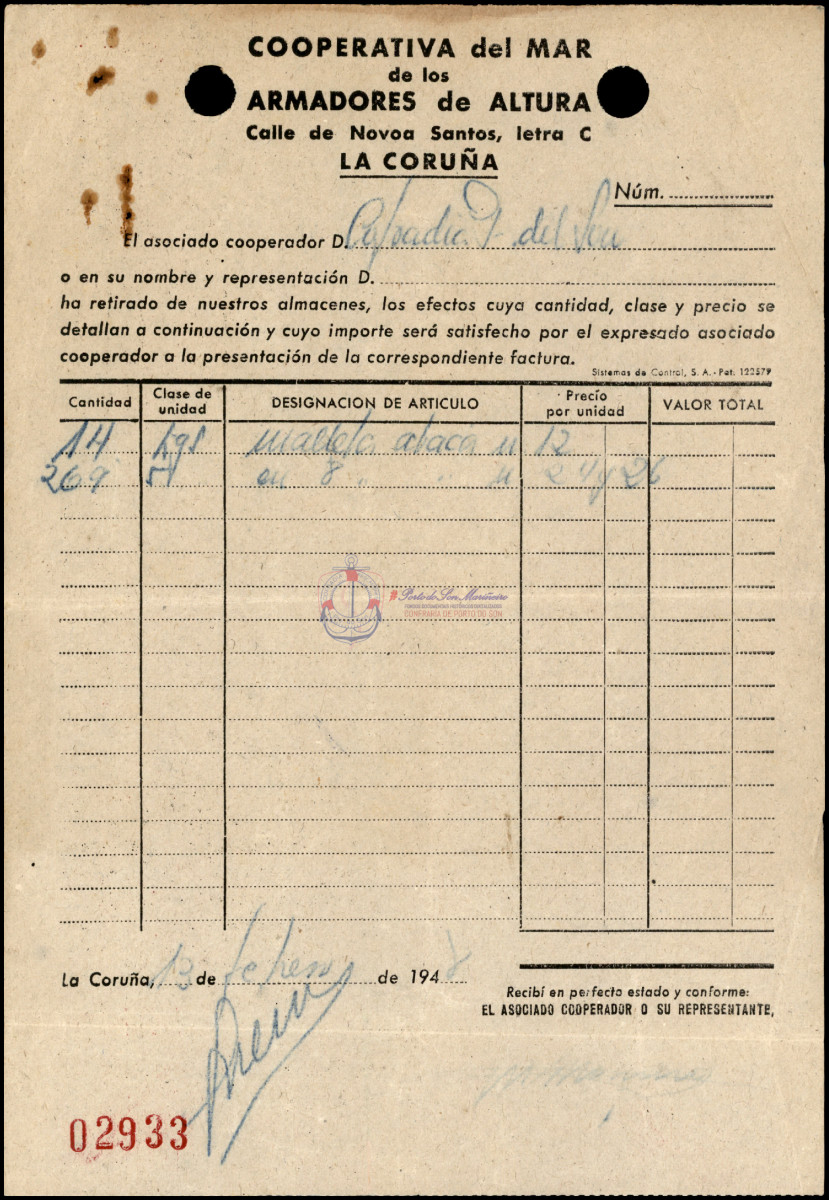 COOPERATIVA del MAR
de los
ARMADORES de ALTURA
Calle de Novoa Santos, letra C
LA CORUÑA
Núm.
El asociado cooperador D. Cofradia P. del Son
o en su nombre y representación D.
ha retirado de nuestros almacenes, los efectos cuya cantidad, clase y precio se
detallan a continuación y cuyo importe será satisfecho por el expresado asociado
cooperador a la presentación de la correspondiente factura.
Sistemas de Control, S. A. - Pat. 122579
Cantidad Clase de unidad DESIGNACION DE ARTICULO Precio por unidad VALOR TOTAL
14 kgs malleta abaca 12
269 en 8 " " 24 y 26
Porto do Son Mariñeiro
CONFRARÍA DE PORTO DO SON
La Coruña, 13 de febrero de 194
Recibí en perfecto estado y conforme:
EL ASOCIADO COOPERADOR O SU REPRESENTANTE,
02933